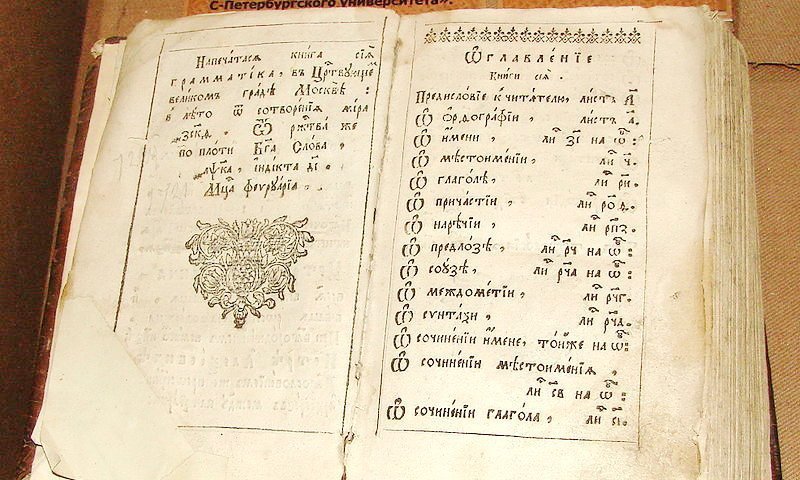 С-Петербургского университета».
Напечатасѧ книга сїѧ
грамматїка, въ Црⷭтвующемъ
великомъ градѣ Москвѣ :
в лѣто ѿ сотворенїѧ мїра
҂зскѳ , Ѿ ржⷭтва же
по плоти Бг҃а Слова ,
҂аѱка , їндїкта дї .
Мцⷭа феуруарїа .
Ѡглавле́нїе
Кни́ги сїѧ̀ .
Предисло́вїе к читателю, листъ а҃
Ѡ орѳогра́фїи , листъ а҃.
Ѡ и҆́мени , ли зї на ѿ :
Ѡ мѣстоиме́нїи , ли ч҃.
Ѡ глаго́лѣ , ли ри҃.
Ѡ прича́стїи , ли
Ѡ нарѣ́чїи , ли рп҃з.
Ѡ предло́зѣ , ли рч҃ на ѿ :
Ѡ сою́зѣ , ли рч҃а на ѿ :
Ѡ междоме́тїи , ли рч҃г.
Ѡ сунта́ѯи , ли рч҃д.
Ѡ сочине́нїи и҆́мене , то́йже на ѿ :
Ѡ сочине́нїи мѣстоиме́нїѧ ,
ли с҃в на ѿ :
Ѡ сочине́нїи глаго́ла , ли